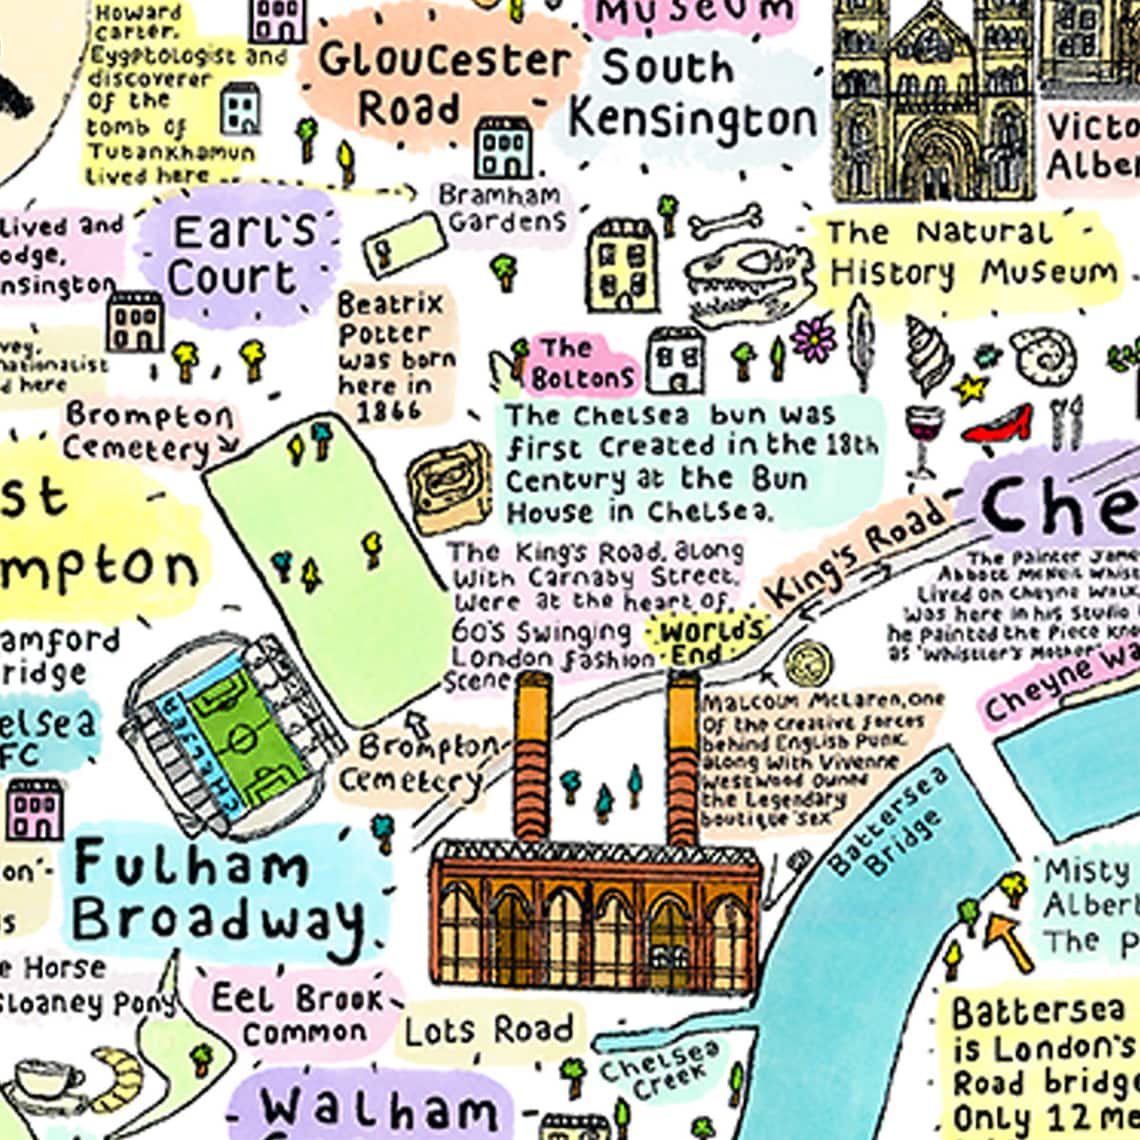 Howard
Carter.
Eygptologist and
discoverer
of the
tomb of
Tutankhamun
lived here
Gloucester
Road
Museum
South
Kensington
Victo
Alber
Bramham
Gardens
lived and
odge,
nsington
Earl's
Court
The Natural
History Museum
Beatrix
Potter
was born
here in
1866
vey.
nationalist
d here
The
Boltons
Brompton
Cemetery
The Chelsea bun was
first created in the 18th
Century at the Bun
House in Chelsea.
st
mpton
Che
King's Road
The King's Road, along
with Carnaby Street,
were at the heart of
60's Swinging
London fashion
scene
World's
End
The Painter Jame
Abbott McNeil Whist
Lived on Cheyne Walk
was here in his studio
he painted the piece kno
as 'Whistler's Mother'
Cheyne Wa
amford
ridge
elsea
FC
CHELSEA
CHELSEA
Brompton
Cemetery
Malcolm McLaren, one
of the creative forces
behind English Punk.
along with Vivenne
Westwood owned
the Legendary
boutique 'sex'
Battersea
Bridge
on'
s
Fulham
Broadway.
'Misty
Albert
The p
e Horse
Sloaney Pony
Eel Brook
Common
Lots Road
Chelsea
Creek
Battersea
is London's
Road bridge
Only 12 me
Walham